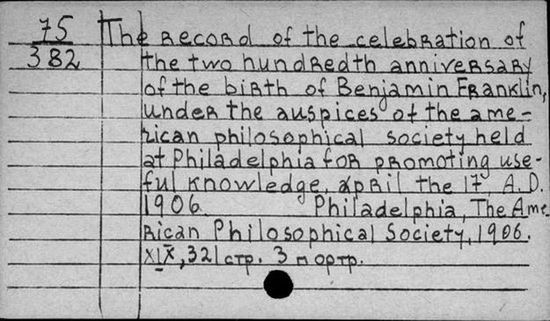 75
382
The record of the celebration of
the two hundredth anniversary
of the birth of Benjamin Franklin,
under the auspices of the ame-
rican philosophical society held
at Philadelphia for promoting use-
ful knowledge, april the 17, A.D.
1906. Philadelphia, The Ame
rican Philosophical Society, 1906.
XIX, 321 стр. 3 портр.